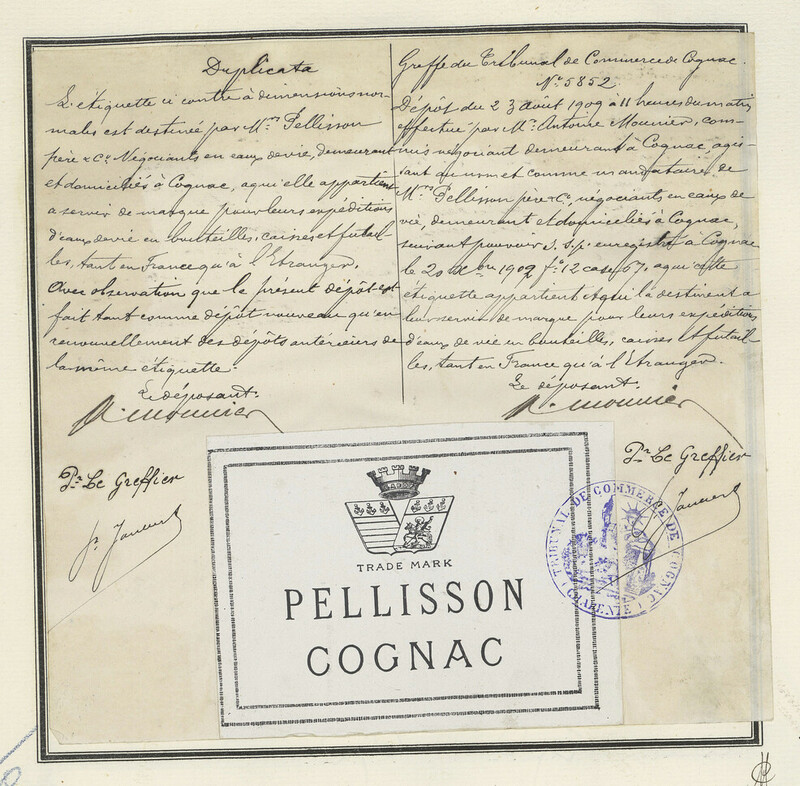 Duplicata
L'étiquette ci contre à dimensions nor-
males est destinée par Mrs Pellisson
père & Cie Négociants en eaux de vie, demeurant
et domiciliés à Cognac, à qui elle appartient
a servir de marque pour leurs expéditions
d'eaux de vie en bouteilles, caisses et futail-
les, tant en France qu'à l'Etranger.
Avec observation que le présent dépôt est
fait tant comme dépôt nouveau qu'en
renouvellement des dépôts antérieurs de
la même étiquette.
Le déposant:
A. Mounier
Pr Le Greffier
Greffe du Tribunal de Commerce de Cognac.
No 5852
Dépôt du 23 août 1909 à 11 heures du matin
effectué par Mr Antoine Mounier, com-
mis négociant demeurant à Cognac, agis-
sant au nom et comme mandataire de
Mrs Pellisson père & Cie, négociants en eaux de
vie, demeurant et domiciliés à Cognac,
suivant pouvoir s. s. p. enregistré à Cognac
le 20 Xbre 1902 fo 12 case 67, à qui cette
étiquette appartient et qui la destinent à
leur servir de marque pour leurs expéditions
d'eaux de vie en bouteilles, caisses et futail-
les, tant en France qu'à l'Etranger.
Le déposant:
A. Mounier
Pr Le Greffier
TRADE MARK
PELLISSON
COGNAC
TRIBUNAL DE COMMERCE DE COGNAC
(CHARENTE)